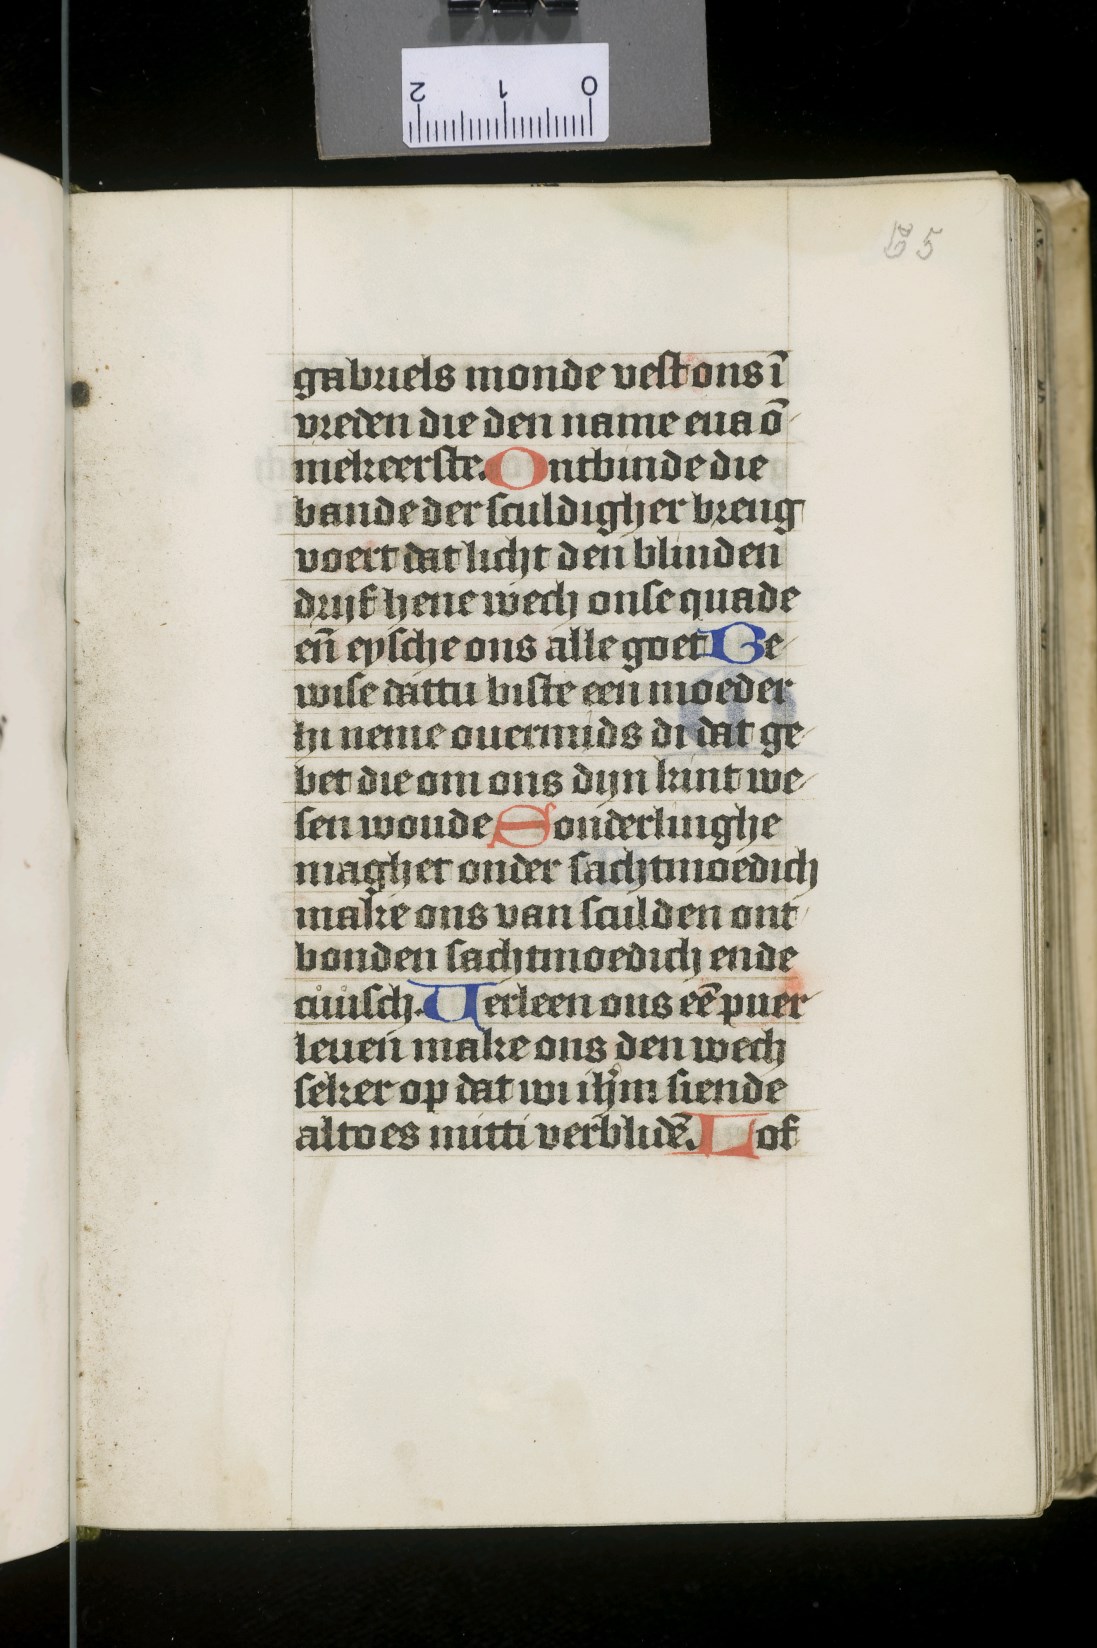 2 1 0
55
gabriels monde vest ons ī
vreden die den name eua ō
mekeerste. Ontbinde die
bande der sculdigher breng
voert dat licht den blinden
drijf hene wech onse quade
en̄ eysche ons alle goet Be
wise dattu biste een moeder
hi neme ouermids di dat ge
bet die om ons dijn kint we
sen woude Sonderlinghe
maghet onder sachtmoedich
make ons van sculden ont
bonden sachtmoedich ende
cuusch. Uerleen ons eē puer
leuen make ons den wech
seker op dat wi ihm siende
altoes mitti verblidē. Lof